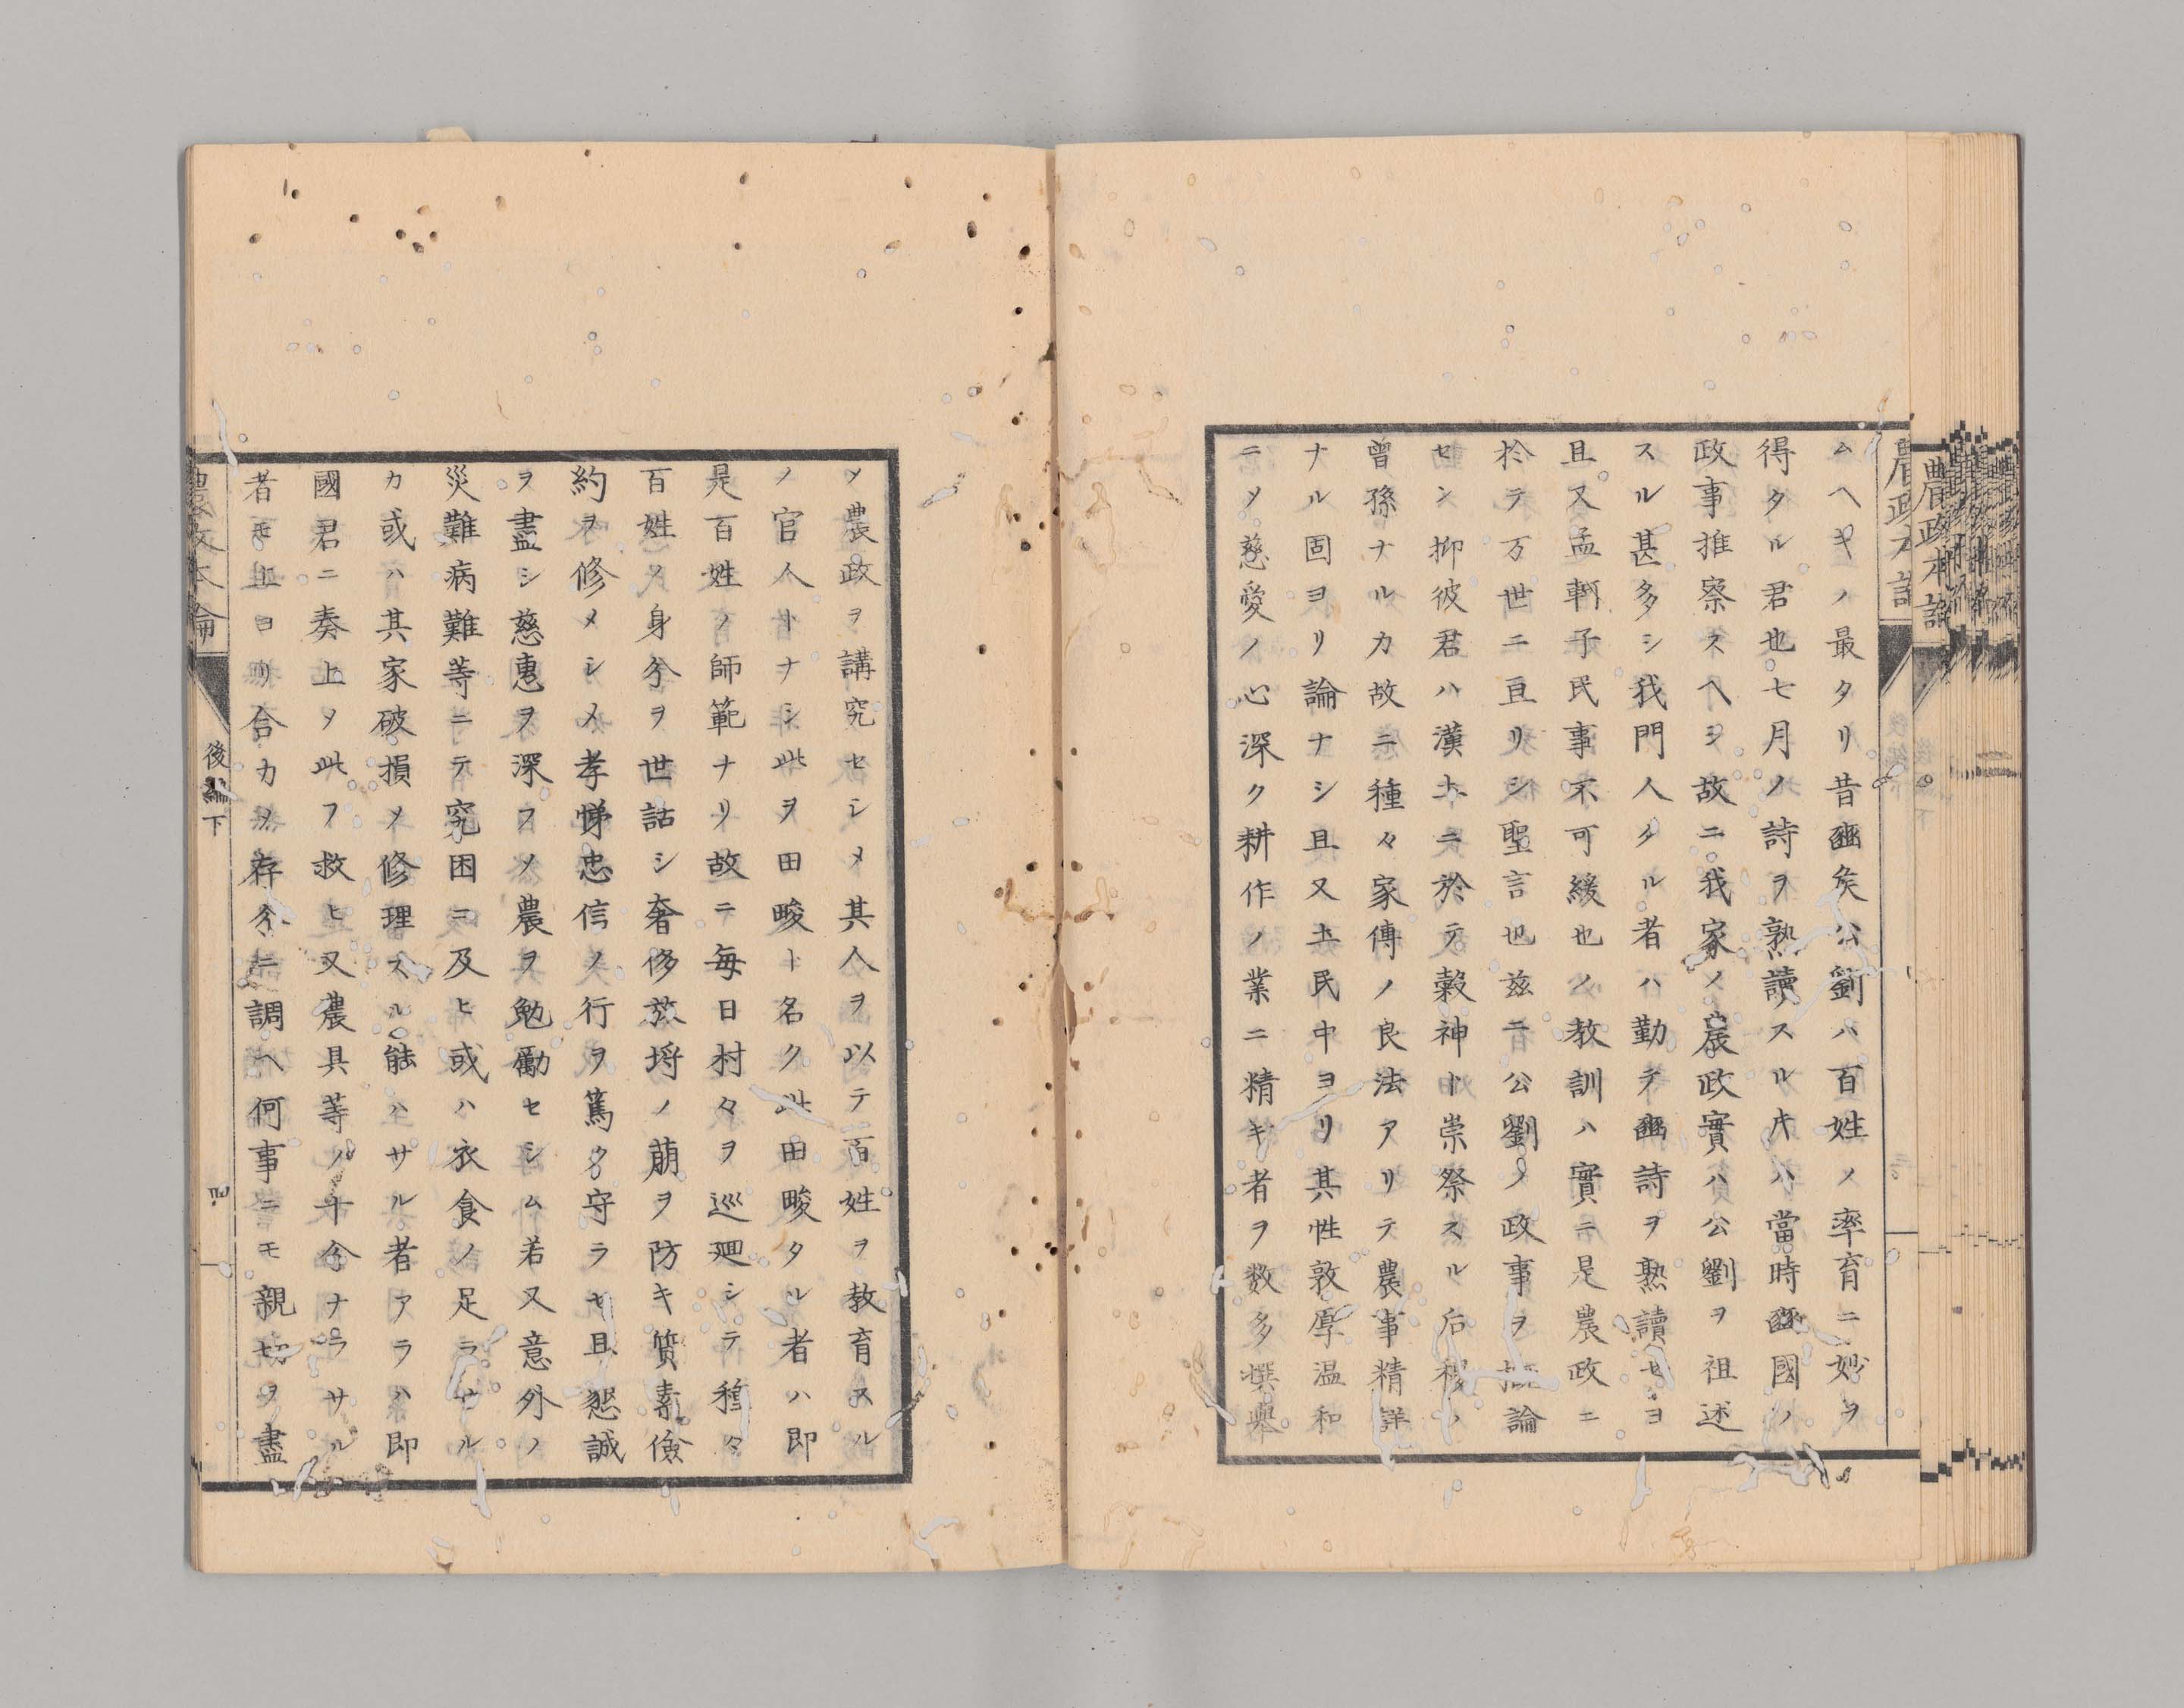 農政本論
ムヘキノ最タリ昔豳矦公劉ハ百姓ノ率育ニ妙ヲ
得タル君也七月ノ詩ヲ熟讀スルキハ當時豳國ノ
政事推察スヘシ故ニ我家ノ農政實ハ公劉ヲ祖述
スル甚多シ我門人タル者ハ勤テ豳詩ヲ熟讀セヨ
且又孟軻子民事不可緩也ノ教訓ハ實ニ是農政ニ
於テ万世ニ亘リシ聖言也茲ニ公劉ノ政事ヲ概論
セン抑彼君ハ漢土ニ於テ穀神ト崇祭スル后稷ノ
曾孫ナルカ故ニ種々家傳ノ良法アリテ農事精詳
ナル固ヨリ論ナシ且又土民中ヨリ其性敦厚温和
ニメ慈愛ノ心深ク耕作ノ業ニ精キ者ヲ数多撰舉
メ農政ヲ講究セシメ其人ヲ以テ百姓ヲ教育スル
ノ官人トナシ此ヲ田畯ト名ク此田畯タル者ハ即
是百姓ノ師範ナリ故ニ毎日村々ヲ巡廻シテ種々
百姓ノ身分ヲ世話シ奢侈放埒ノ萠ヲ防キ質素儉
約ヲ修メシメ孝悌忠信ノ行ヲ篤ク守ラセ且懇誠
ヲ盡シ慈惠ヲ深フメ農ヲ勉勵セシム若又意外ノ
災難病難等ニテ究困ニ及ヒ或ハ衣食ノ足ラサル
カ或ハ其家破損メ修理スル能ハサル者アラハ即
國君ニ奏上メ此フ救ヒ又農具等ノ十分ナラサル
者モ上ヨリ合力ヲ存分ニ調ヘ何事ニモ親切ヲ盡
農政本論
後編下
四